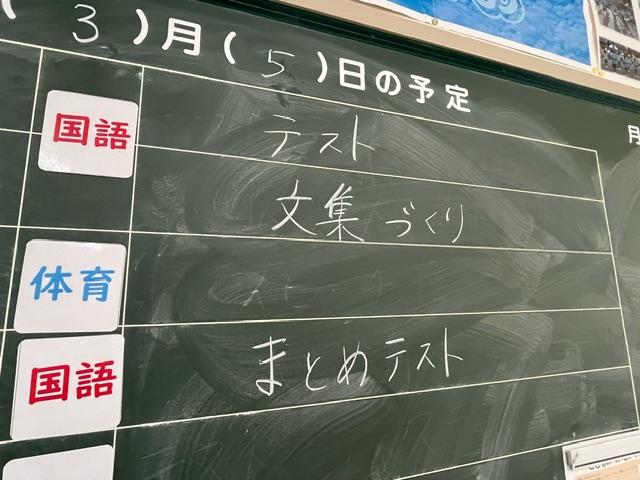 (3)月(5)日の予定
国語 テスト
文集づくり
体育
国語 まとめテスト
月